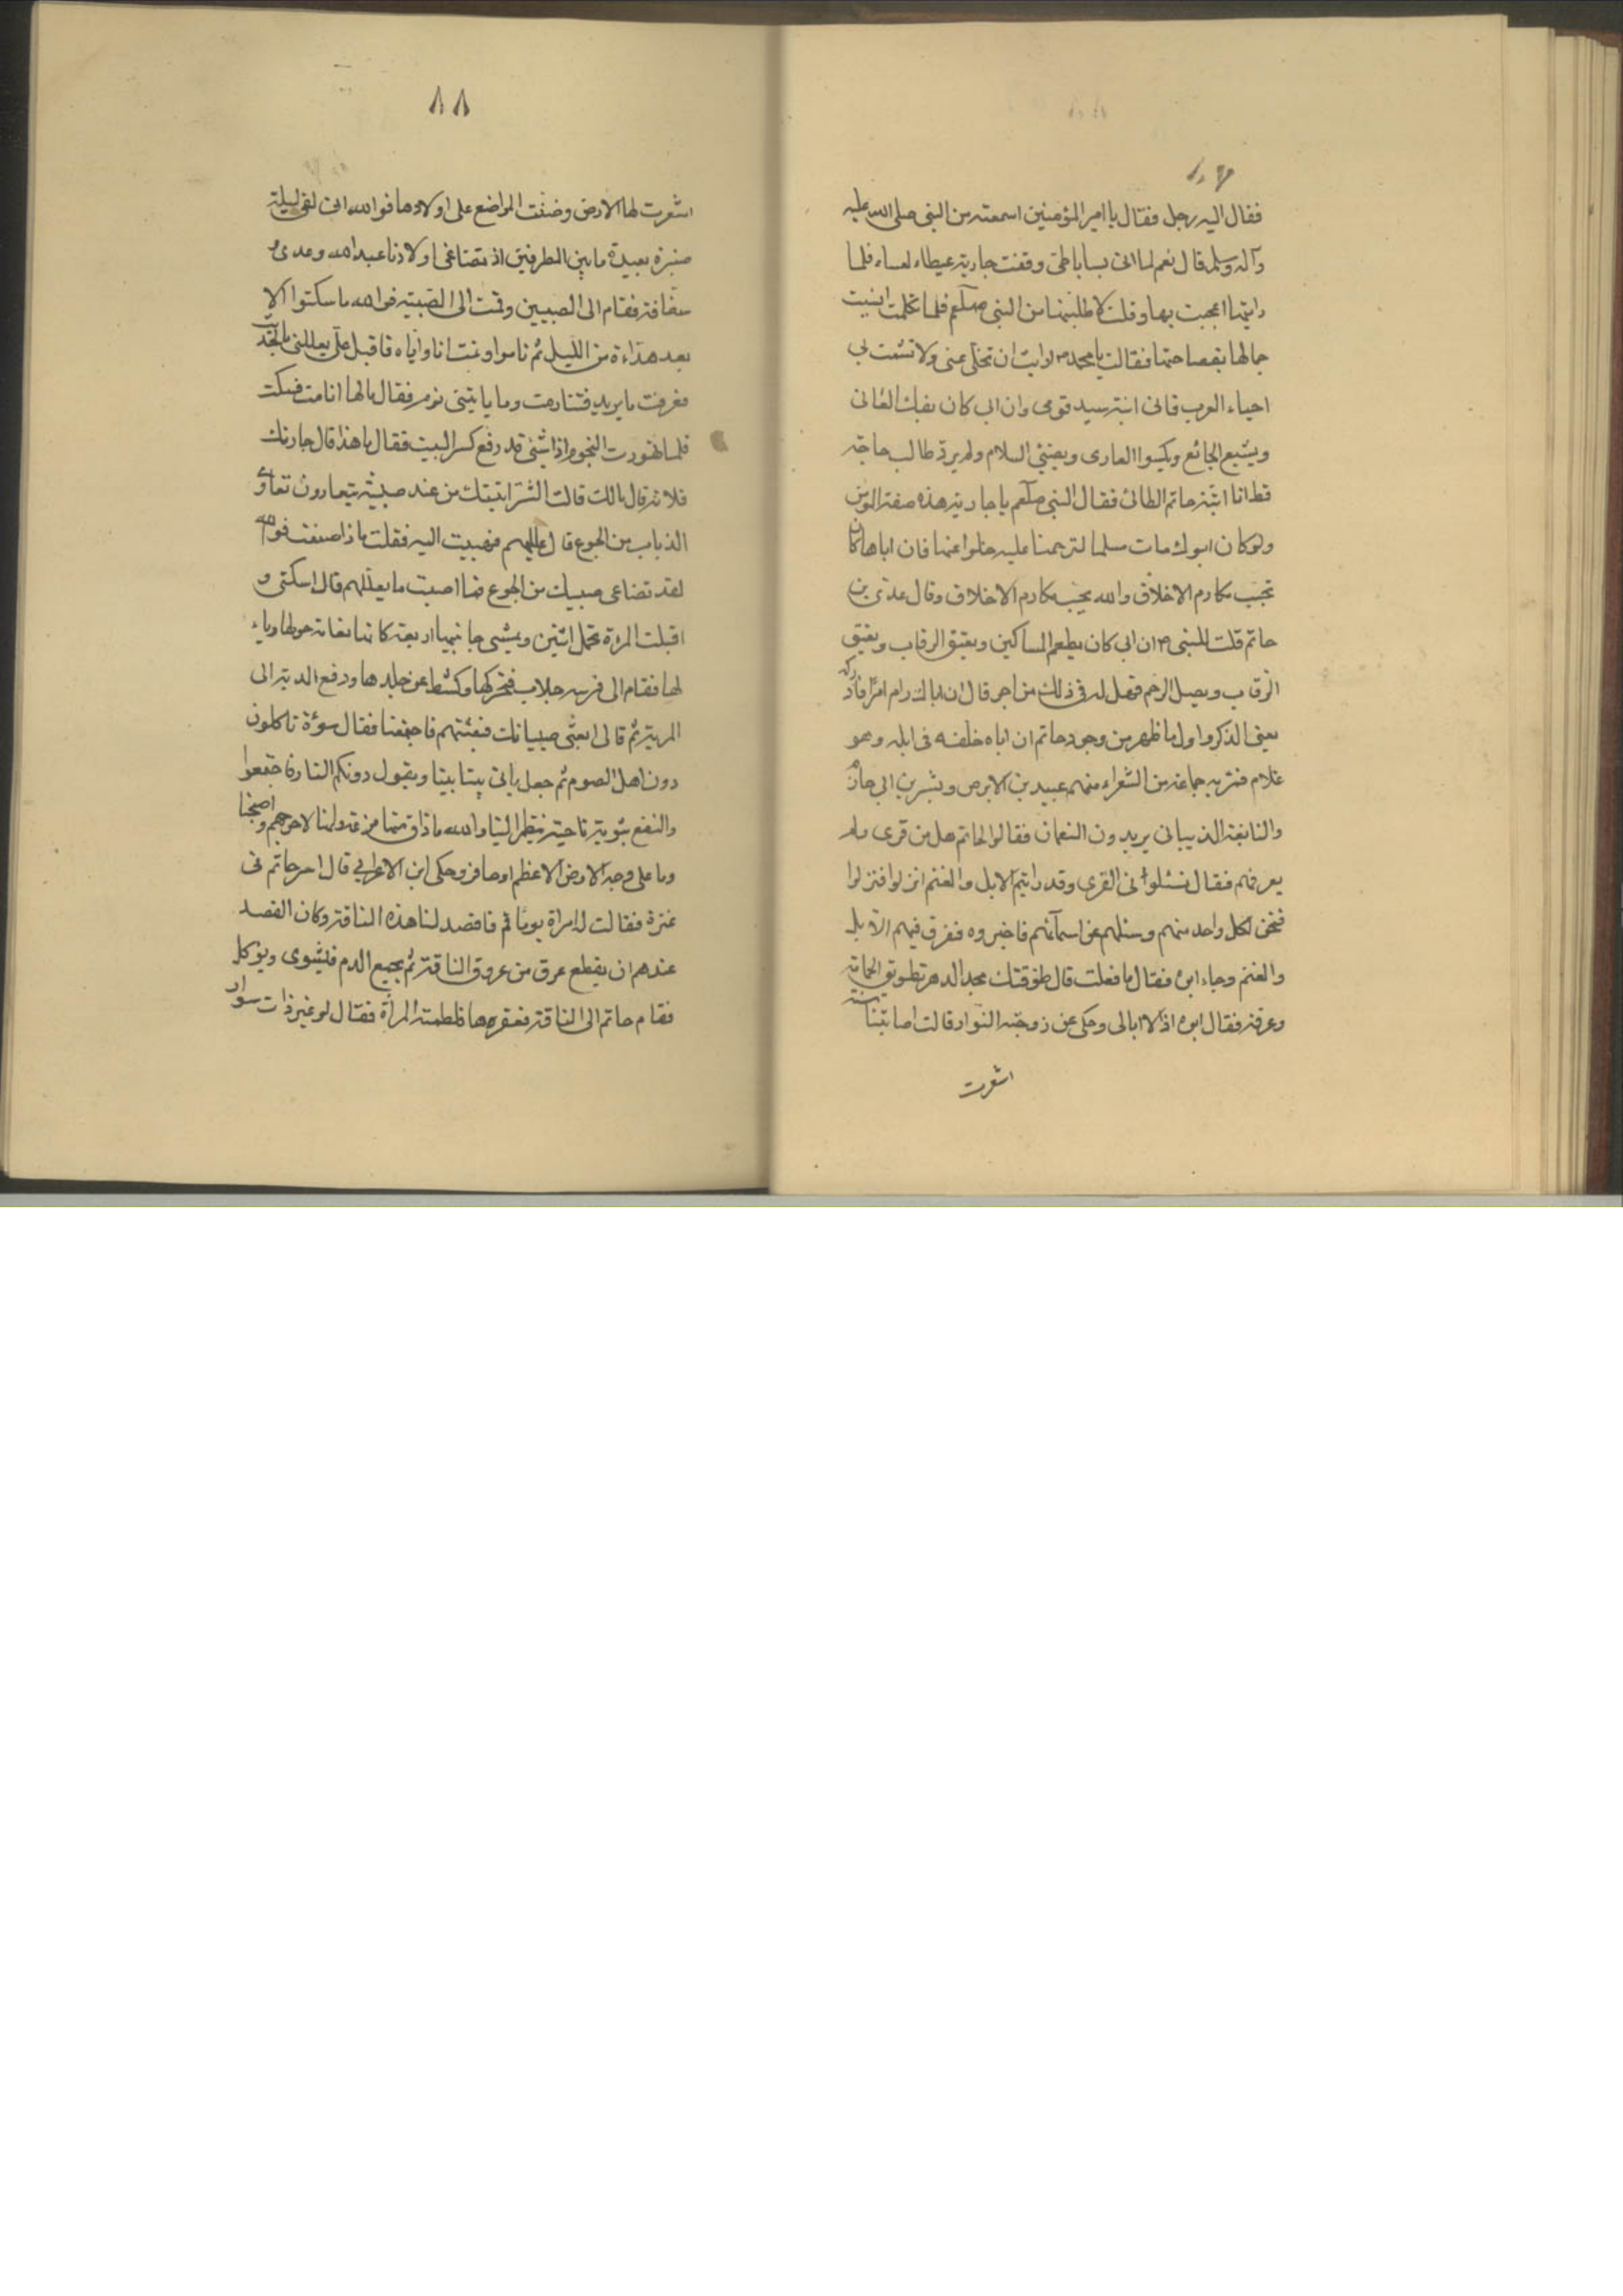 فقال اليه رجل فقال يا امير المؤمنين اسمعته من النبي صلى الله عليه
وآله وسلم قال نعم لما اتى بسبايا طي وقفت جارية عيطاء لعساء فلما
رايتها اعجبت بها وقلت لاطلبنها من النبي صلعم فلما تكلمت انسيت
جمالها بفصاحتها فقالت يا محمد ص رايت ان تخلى عنى ولا تشمت بي
احياء العرب فانى ابنة سيد قومى وان ابي كان يفك العانى
ويشبع الجائع ويكسوا العارى ويفشي السلام ولم يرد طالب حاجة
قط انا ابنة حاتم الطائى فقال النبي صلعم يا جارية هذه صفة المؤمن
ولو كان ابوك مات مسلما لترحمنا عليه خلوا عنها فان اباها كان
يحب مكارم الاخلاق والله يحب مكارم الاخلاق وقال عدى بن
حاتم قلت للنبي ص ان ابي كان يطعم المساكين ويعتق الرقاب ويعتق
الرقاب ويصل الرحم فهل له في ذلك من اجر قال ان اباك رام امرا فادركه
يعنى الذكر واول ما ظهر من وجود حاتم ان اباه خلفه في ابله وهو
غلام فمر به جماعة من الشعراء منهم عبيد بن الابرص وبشر بن ابي حازم
والنابغة الذبيانى يريدون النعمان فقالوا لحاتم هل من قرى ولم
يعرفهم فقال تسئلوانى القرى وقد رايتم الابل والغنم انزلوا فنزلوا
فنحر لكل واحد منهم وسئلهم عن اسمائهم فاخبروه ففرق فيهم الابل
والغنم وجاء ابوه فقال ما فعلت قال طوقتك مجد الدهر تطويق الحمامة
وعرفه فقال ابوه اذا لا ابالى وحكى عن زوجته النوار قالت اصابتنا سنة
اشعرت
٨٨
اشعرت لها الارض وضنت المراضع على اولادها فوالله انى لفى ليلة
صنبرة بعيدة ما بين الطرفين اذ تضاغى اولادنا عبد الله وعدى و
سفانة فقام الى الصبيين وقمت الى الصبية فوالله ما سكتوا الا
بعد هداءة من الليل ثم ناموا ونمت انا واياه فاقبل على يعللنى بالحديث
فعرفت ما يريد فتناومت وما ياتينى نوم فقال مالها انامت فسكت
فلما تهورت النجوم اذا شئ قد رفع كسر البيت فقال ما هذا قال جارتك
فلانة قال مالك قالت الشر اتيتك من عند صبية يتعاوون تعاوى
الذياب من الجوع قال عليهم فهببت اليه فقلت ماذا صنعت فوالله
لقد تضاغى صبيك من الجوع فما اصبت ما يعللهم قال اسكتى و
اقبلت المرءة تحمل اثنين ويمشى جانبيها اربعة كانها نعامة حولها رياء
لها فقام الى فرسه جلاب فنحرها وكشط عن جلدها ودفع المدية الى
المرءة ثم قال ابعثى صبيانك فبعثتهم فاجتمعنا فقال سوءة تاكلون
دون اهل الصوم ثم جعل ياتى بيتا بيتا ويقول دونكم النار فاجتمعوا
والتفع بثوبه ناحية ينظر الينا والله ما ذاق منها مزعة وانها لاحوجهم واصبحنا
وما على وجه الارض الا عظم او حافر وحكى ابن الاعرابي قال اسر حاتم فى
عنزة فقالت له امراة يوما قم فافصد لنا هذه الناقة وكان الفصد
عندهم ان يقطع عرق من عروق الناقة ثم يجمع الدم فيشوى ويؤكل
فقام حاتم الى الناقة فعقرها فلطمته المرأة فقال لو غير ذات سوار